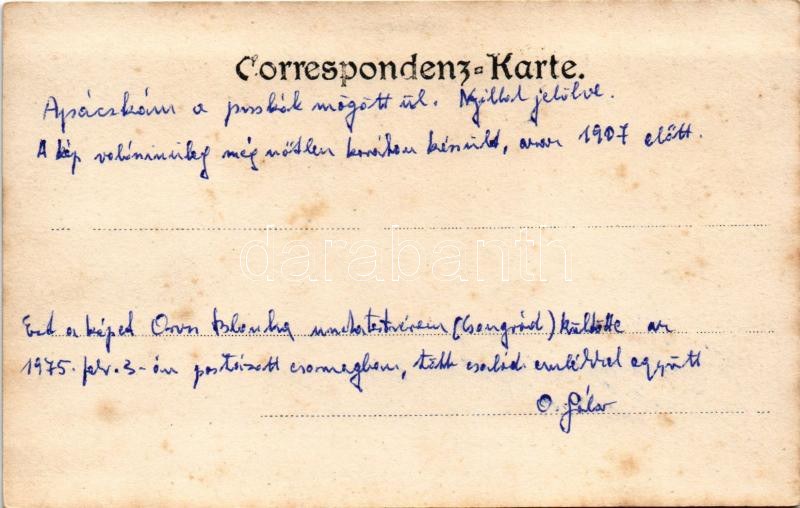 Correspondenz-Karte.
Apácskám a puskák mögött ül. Nyillal jelölve.
A kép valószinüleg még nőtlen korában készült, azaz 1907 előtt.
darabanth
Ezt a képet Orosz Blanka unokatestvérem (Csongrád) küldötte az
1975. febr. 3-án postázott csomagban, több családi emlékkel együtt
O. Géla